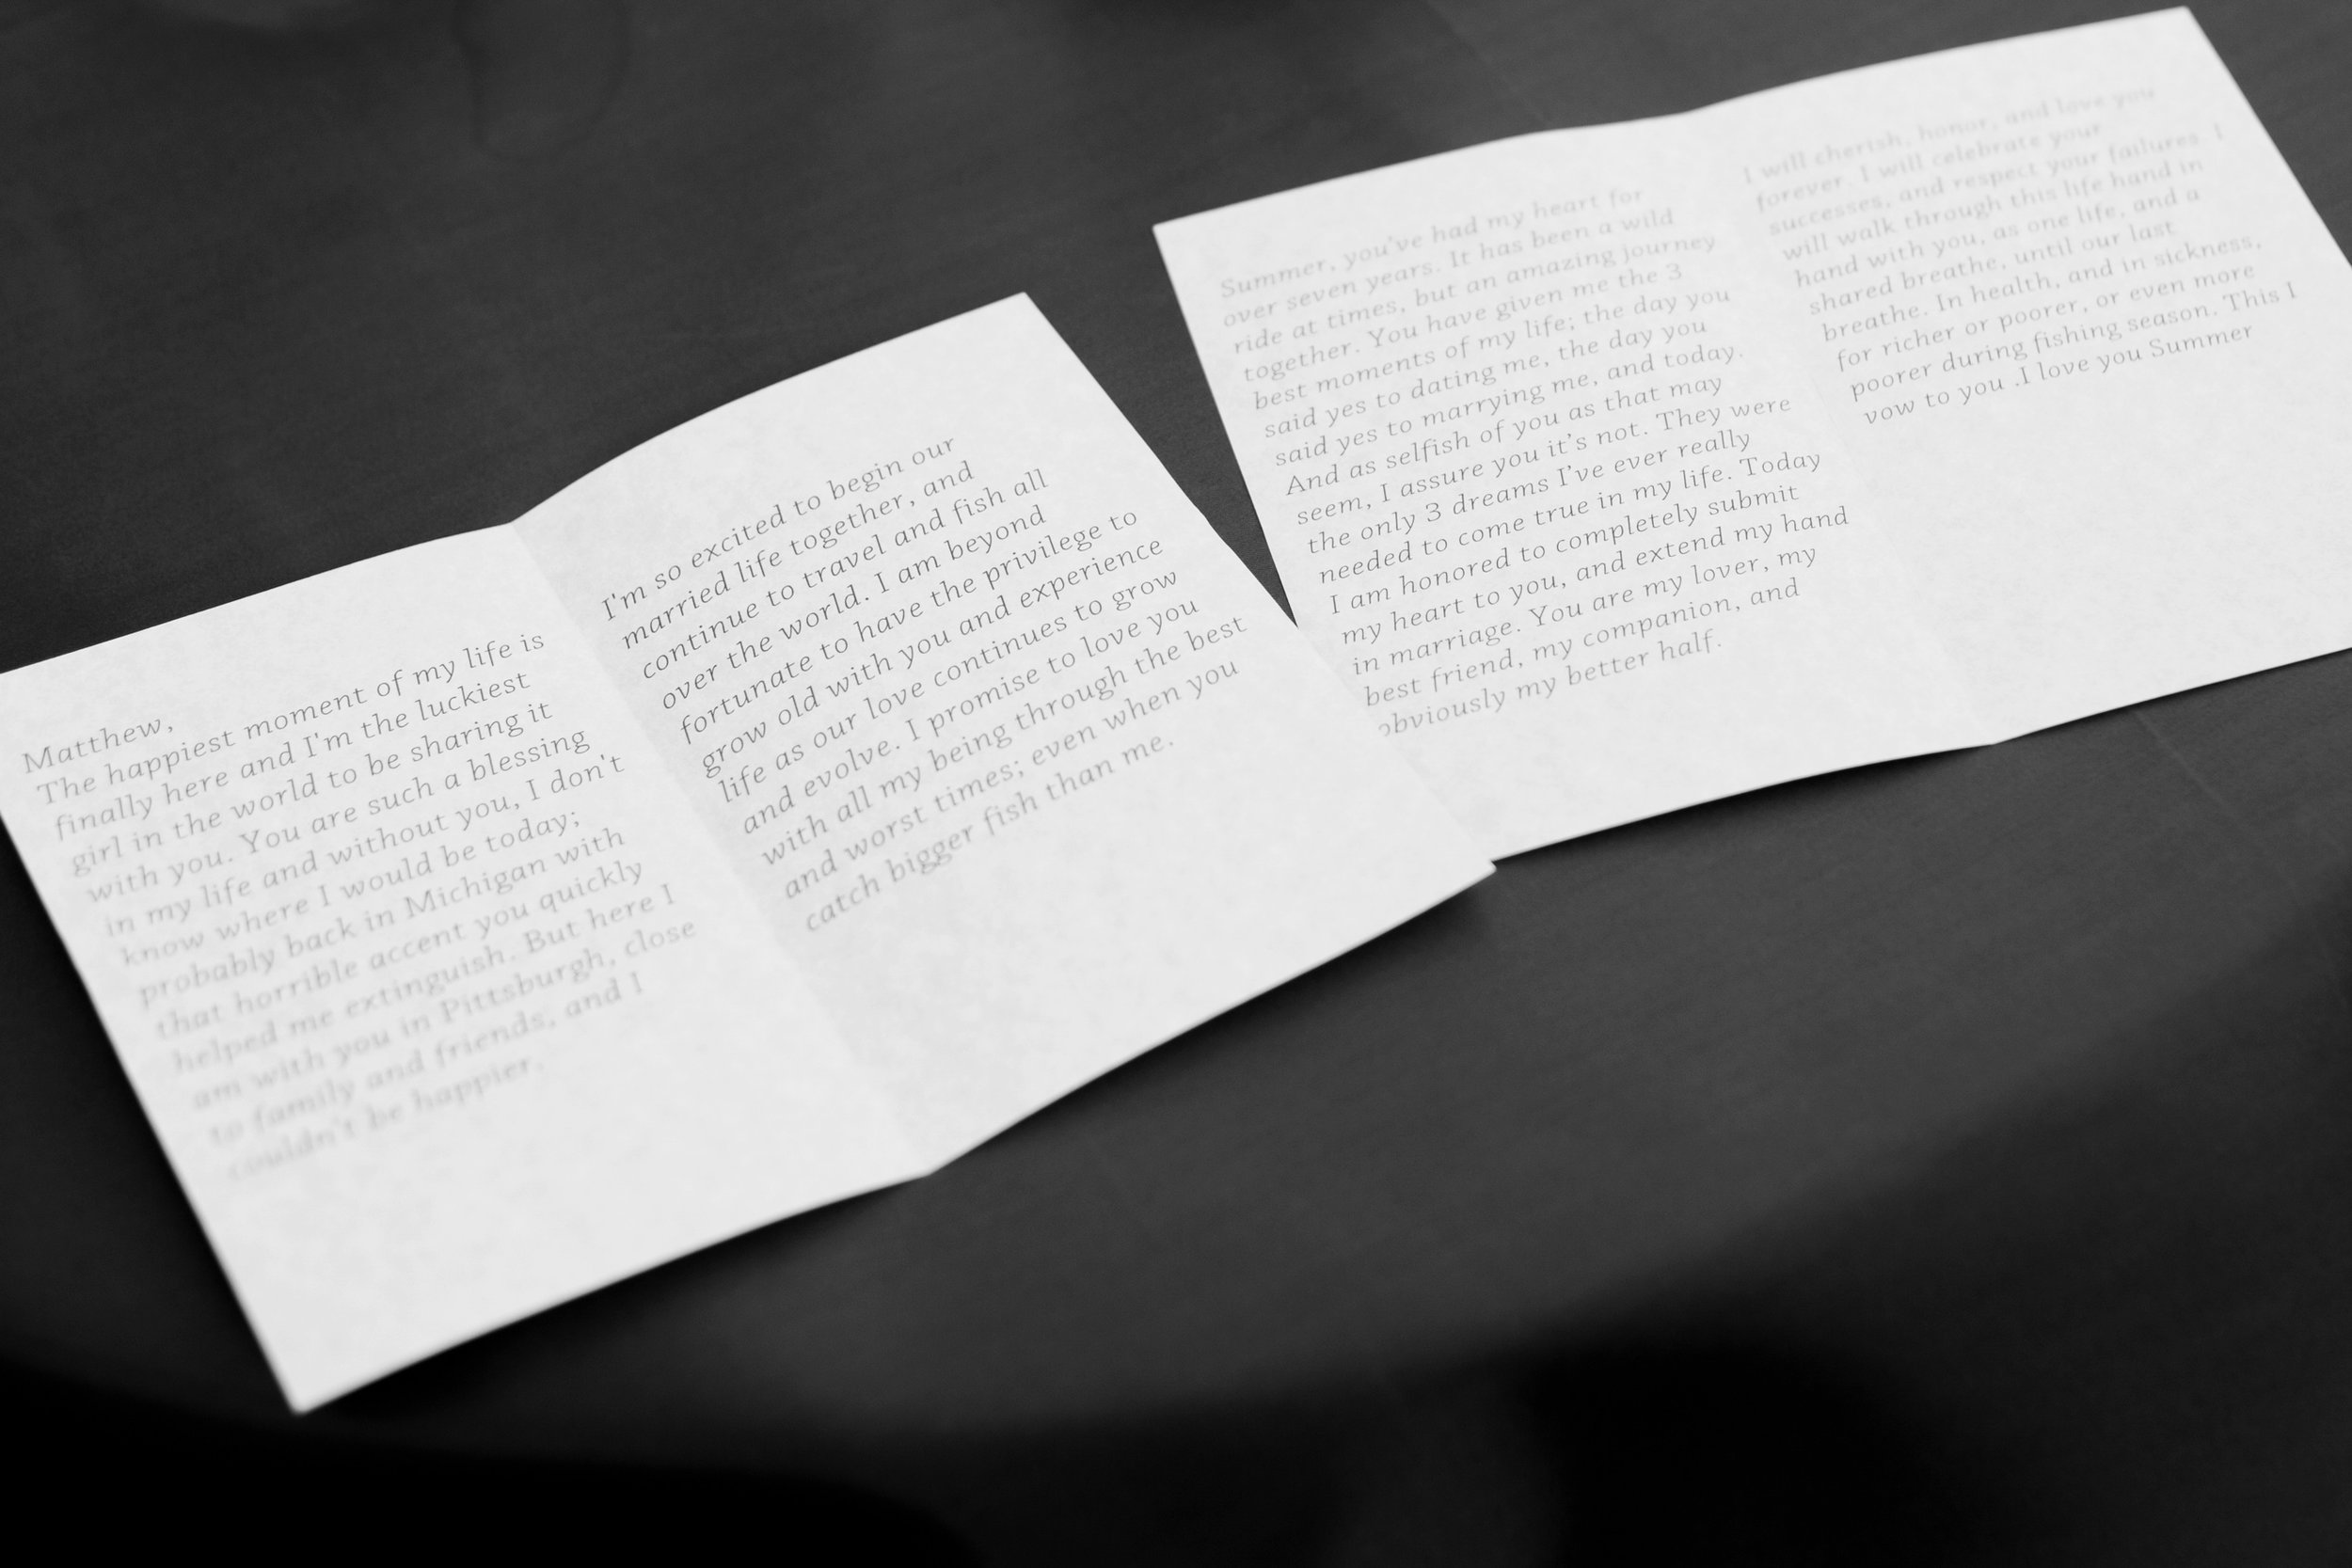 Matthew,
The happiest moment of my life is
finally here and I'm the luckiest
girl in the world to be sharing it
with you. You are such a blessing
in my life and without you, I don't
know where I would be today;
probably back in Michigan with
that horrible accent you quickly
helped me extinguish. But here I
am with you in Pittsburgh, close
to family and friends, and I
couldn't be happier.
I'm so excited to begin our
married life together, and
continue to travel and fish all
over the world. I am beyond
fortunate to have the privilege to
grow old with you and experience
life as our love continues to grow
and evolve. I promise to love you
with all my being through the best
and worst times; even when you
catch bigger fish than me.
Summer, you've had my heart for
over seven years. It has been a wild
ride at times, but an amazing journey
together. You have given me the 3
best moments of my life; the day you
said yes to dating me, the day you
said yes to marrying me, and today.
And as selfish of you as that may
seem, I assure you it's not. They were
the only 3 dreams I've ever really
needed to come true in my life. Today
I am honored to completely submit
my heart to you, and extend my hand
in marriage. You are my lover, my
best friend, my companion, and
obviously my better half.
I will cherish, honor, and love you
forever. I will celebrate your
successes, and respect your failures I
will walk through this life hand in
hand with you, as one life, and a
shared breathe, until our last
breathe. In health, and in sickness,
for richer or poorer, or even more
poorer during fishing season. This I
vow to you .I love you Summer